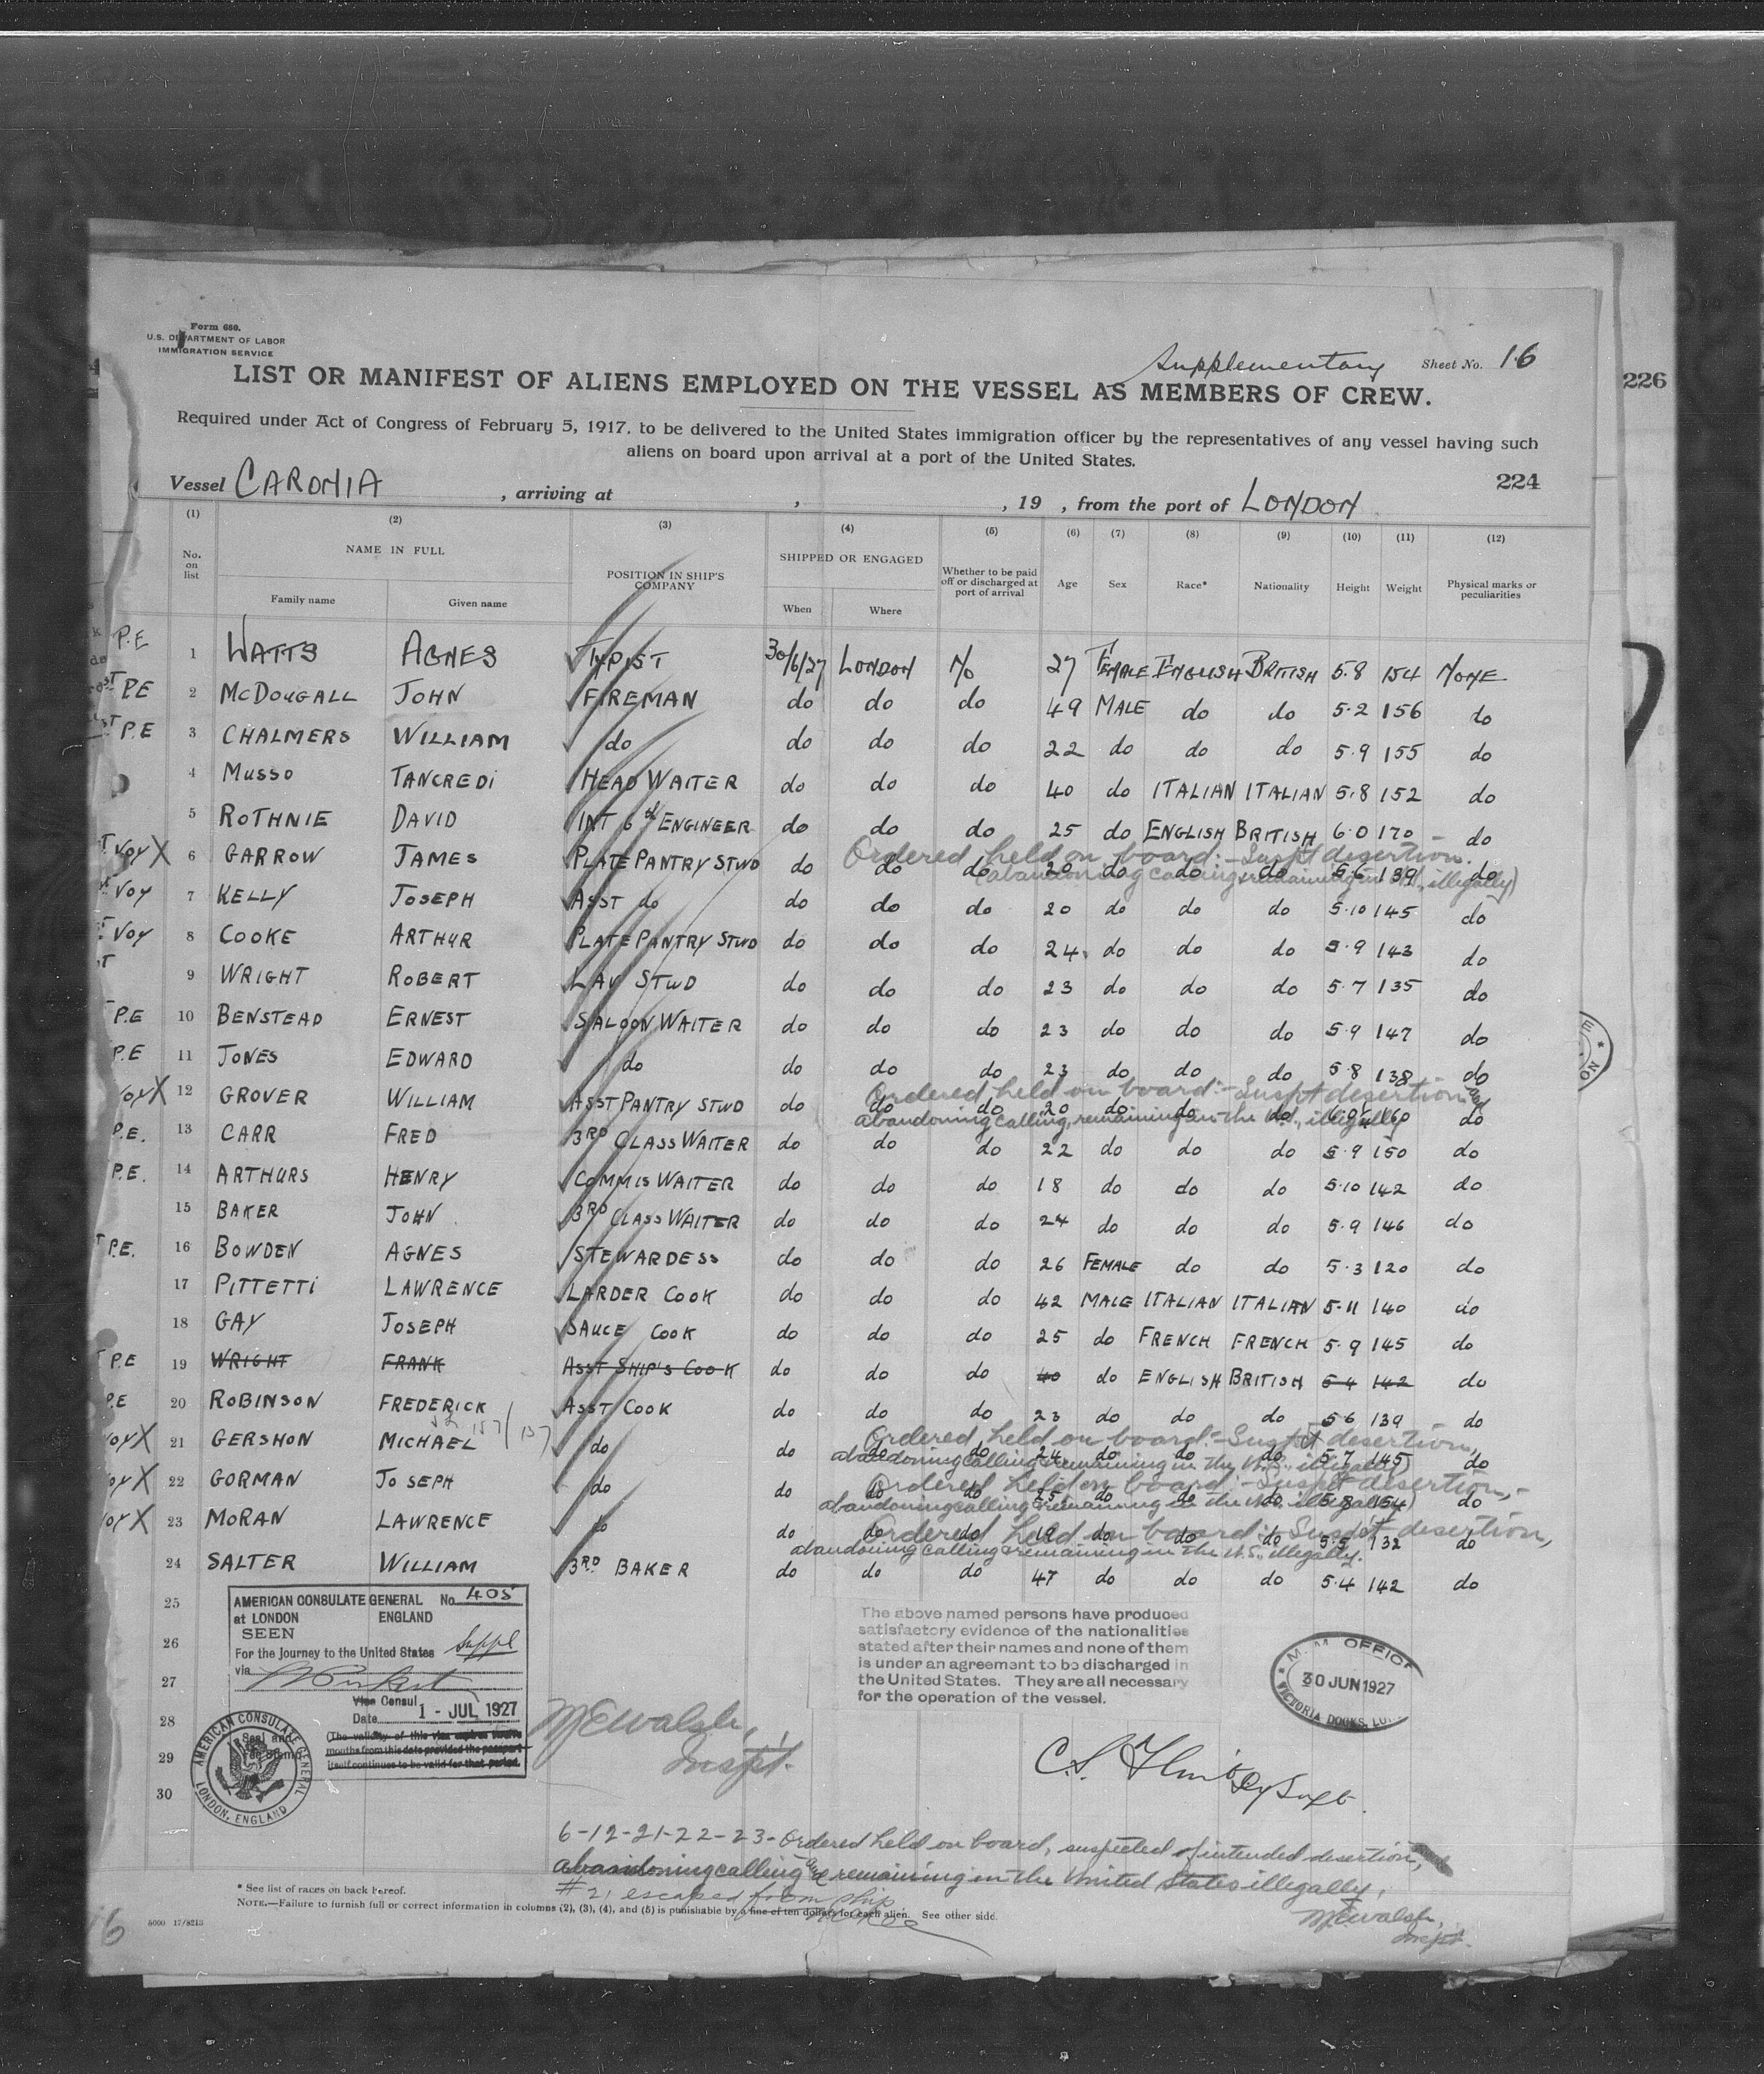 Form 680.
U.S. DEPARTMENT OF LABOR
IMMIGRATION SERVICE
Supplementary Sheet No. 16
LIST OR MANIFEST OF ALIENS EMPLOYED ON THE VESSEL AS MEMBERS OF CREW.
Required under Act of Congress of February 5, 1917, to be delivered to the United States immigration officer by the representatives of any vessel having such
aliens on board upon arrival at a port of the United States.
226
224
Vessel CARONIA , arriving at , , 19 , from the port of LONDON
(1) (2) (3) (4) (5) (6) (7) (8) (9) (10) (11) (12)
No. on list NAME IN FULL Family name Given name POSITION IN SHIP'S COMPANY SHIPPED OR ENGAGED When Where Whether to be paid off or discharged at port of arrival Age Sex Race* Nationality Height Weight Physical marks or peculiarities
P.E 1 WATTS AGNES TYPIST 30/6/27 LONDON No 27 FEMALE ENGLISH BRITISH 5.8 154 NONE
PE 2 McDOUGALL JOHN FIREMAN do do do 49 MALE do do 5.2 156 do
P.E 3 CHALMERS WILLIAM do do do do 22 do do do 5.9 155 do
4 MUSSO TANCREDi HEAD WAITER do do do 40 do ITALIAN ITALIAN 5.8 152 do
5 ROTHNIE DAVID INT 6th ENGINEER do do do 25 do ENGLISH BRITISH 6.0 170 do
Ordered held on board:- Suspt desertion.
VOY X 6 GARROW JAMES PLATE PANTRY STWD do do do 20 do do do 5.6 139 do
(abandoning calling & remaining in U.S., illegally)
VOY 7 KELLY JOSEPH ASST do do do do 20 do do do 5.10 145 do
VOY 8 COOKE ARTHUR PLATE PANTRY STWD do do do 24 do do do 5.9 143 do
9 WRIGHT ROBERT LAV STWD do do do 23 do do do 5.7 135 do
P.E 10 BENSTEAD ERNEST SALOON WAITER do do do 23 do do do 5.9 147 do
P.E 11 JONES EDWARD do do do do 23 do do do 5.8 138 do
Ordered held on board:- Suspt desertion and
VOY X 12 GROVER WILLIAM ASST PANTRY STWD do do do 20 do do do 6.0 160 do
abandoning calling, remaining in the U.S., illegally
P.E. 13 CARR FRED 3RD CLASS WAITER do do do 22 do do do 5.9 150 do
P.E. 14 ARTHURS HENRY COMMIS WAITER do do do 18 do do do 5.10 142 do
15 BAKER JOHN 3RD CLASS WAITER do do do 24 do do do 5.9 146 do
P.E. 16 BOWDEN AGNES STEWARDESS do do do 26 FEMALE do do 5.3 120 do
17 PITTETTi LAWRENCE LARDER COOK do do do 42 MALE ITALIAN ITALIAN 5.11 140 do
18 GAY JOSEPH SAUCE COOK do do do 25 do FRENCH FRENCH 5.9 145 do
P.E 19 WRIGHT FRANK ASST SHIP'S COOK do do do 40 do ENGLISH BRITISH 5.4 142 do
P.E 20 ROBINSON FREDERICK ASST COOK do do do 23 do do do 5.6 139 do
Ordered held on board:- Suspt desertion,
VOY X 21 GERSHON MICHAEL do do do do 24 do do do 5.7 145 do
abandoning calling & remaining in the U.S., illegally)
Ordered held on board:- Suspt desertion,-
VOY X 22 GORMAN JOSEPH do do do do 25 do do do 5.8 154 do
abandoning calling & remaining in the U.S. illegally)
Ordered held on board:- Suspt desertion,
VOY X 23 MORAN LAWRENCE do do do do 19 do do do 5.5 132 do
abandoning calling & remaining in the U.S. illegally.
24 SALTER WILLIAM 3RD BAKER do do do 47 do do do 5.4 142 do
25
26
27
28
29
30
AMERICAN CONSULATE GENERAL No. 405
at LONDON ENGLAND
SEEN
For the journey to the United States Suppl
via
Vice Consul
Date 1 - JUL 1927
(The validity of this visa expires twelve
months from this date provided the passport
itself continues to be valid for that period.
Seal and
Fee Stamp
AMERICAN CONSULATE GENERAL
LONDON, ENGLAND
The above named persons have produced
satisfactory evidence of the nationalities
stated after their names and none of them
is under an agreement to be discharged in
the United States. They are all necessary
for the operation of the vessel.
M. M. OFFICE
30 JUN 1927
VICTORIA DOCKS,
M E Walsh,
Inspt.
6-12-21-22-23- Ordered held on board, suspected of intended desertion,
abandoning calling and remaining in the United States illegally.
#21 escaped from ship
M E Walsh,
Inspt.
* See list of races on back hereof.
NOTE.—Failure to furnish full or correct information in columns (2), (3), (4), and (5) is punishable by a fine of ten dollars for each alien. See other side.
5000 17/8213